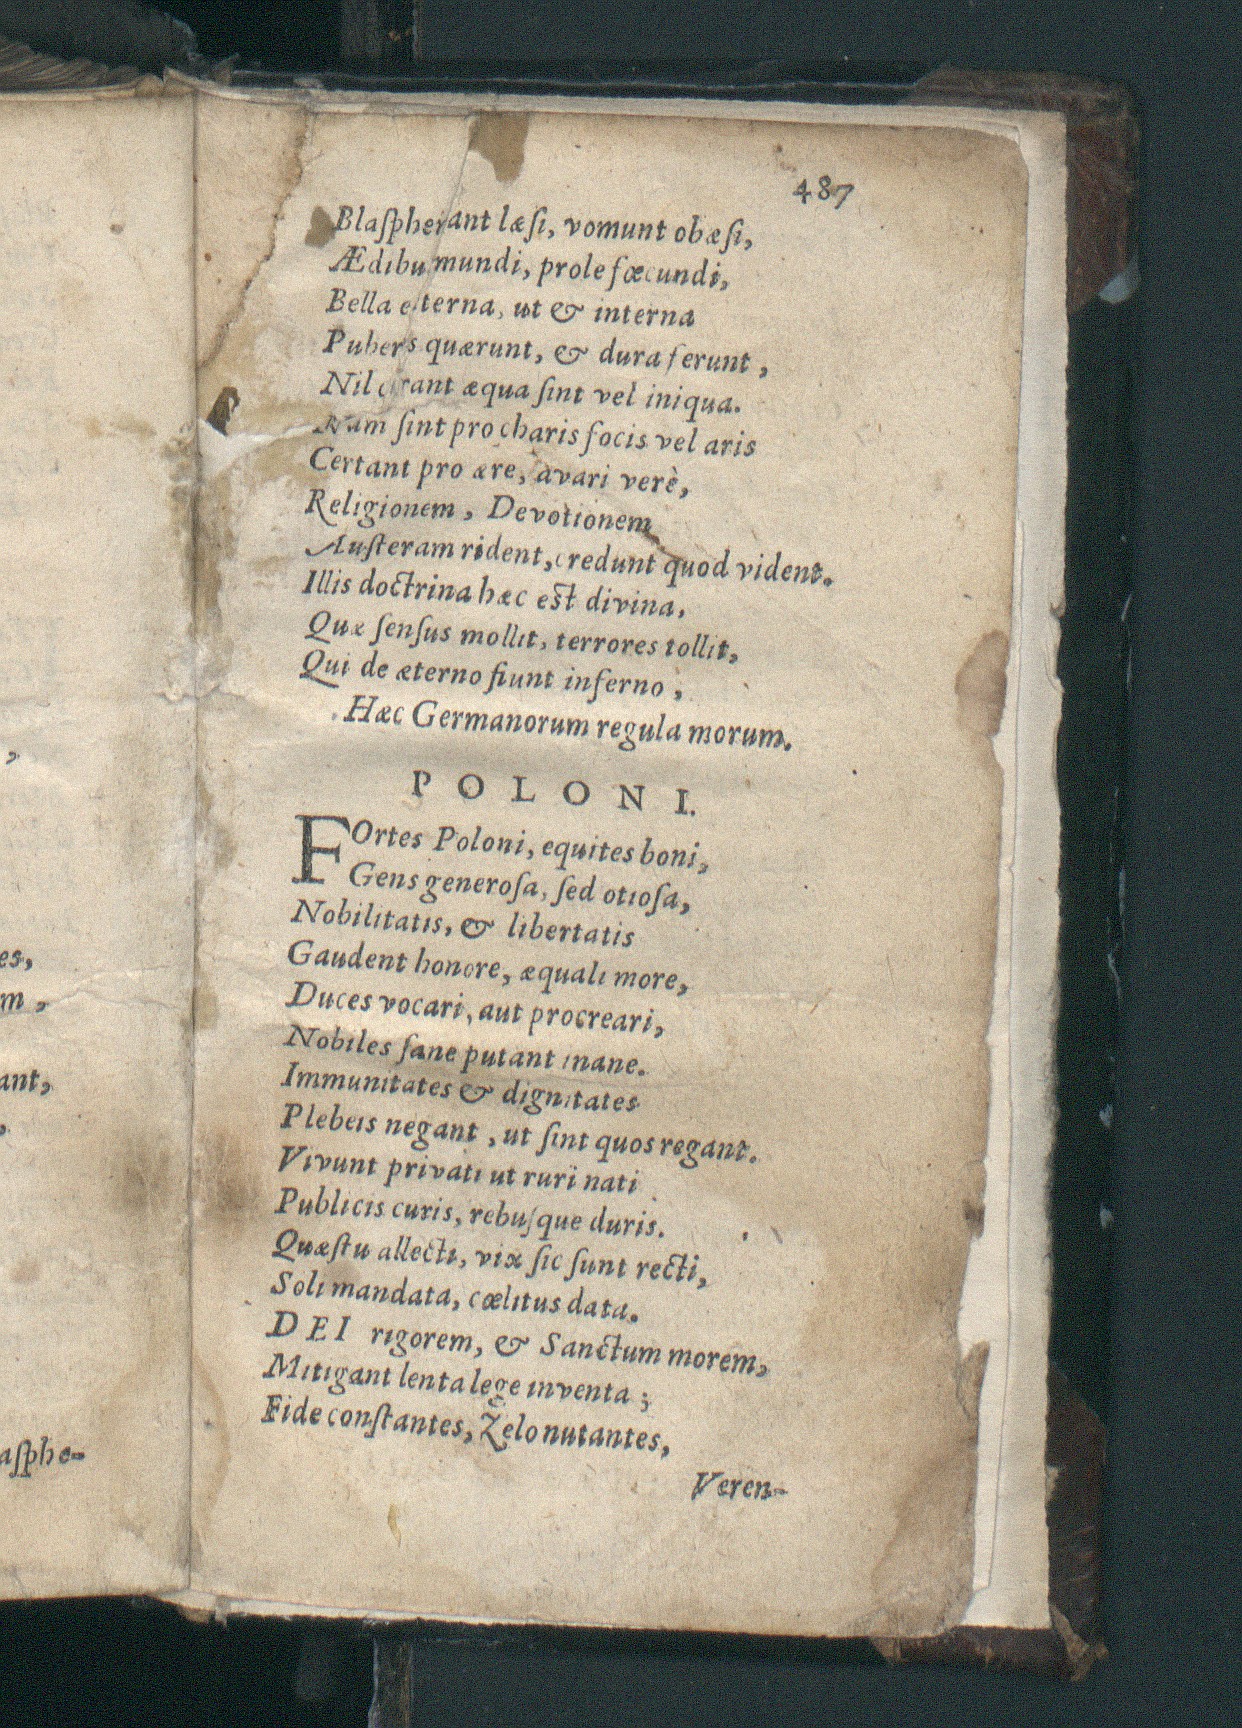 es,
m,
ant,
aſphe-
487
Blaſpherant læſi, vomunt obæſi,
Ædibu mundi, prole fœcundi,
Bella externa, ut & interna
Pubers quærunt, & dura ferunt,
Nil curant æqua ſint vel iniqua.
Nam ſint pro charis focis vel aris
Certant pro ære, avari verè,
Religionem, Devotionem
Auſteram rident, credunt quod vident.
Illis doctrina hæc est divina,
Quæ ſenſus mollit, terrores tollit,
Qui de æterno fiunt inferno,
Hæc Germanorum regula morum.
POLONI.
FOrtes Poloni, equites boni,
Gens generoſa, ſed otioſa,
Nobilitatis, & libertatis
Gaudent honore, æquali more,
Duces vocari, aut procreari,
Nobiles ſane putant inane.
Immunitates & dignitates
Plebeis negant, ut ſint quos regant.
Vivunt privati ut ruri nati
Publicis curis, rebuſque duris.
Quæſtu allecti, vix ſic ſunt recti,
Soli mandata, cœlitus data.
DEI rigorem, & Sanctum morem,
Mitigant lenta lege inventa;
Fide conſtantes, Zelo nutantes,
Veren-